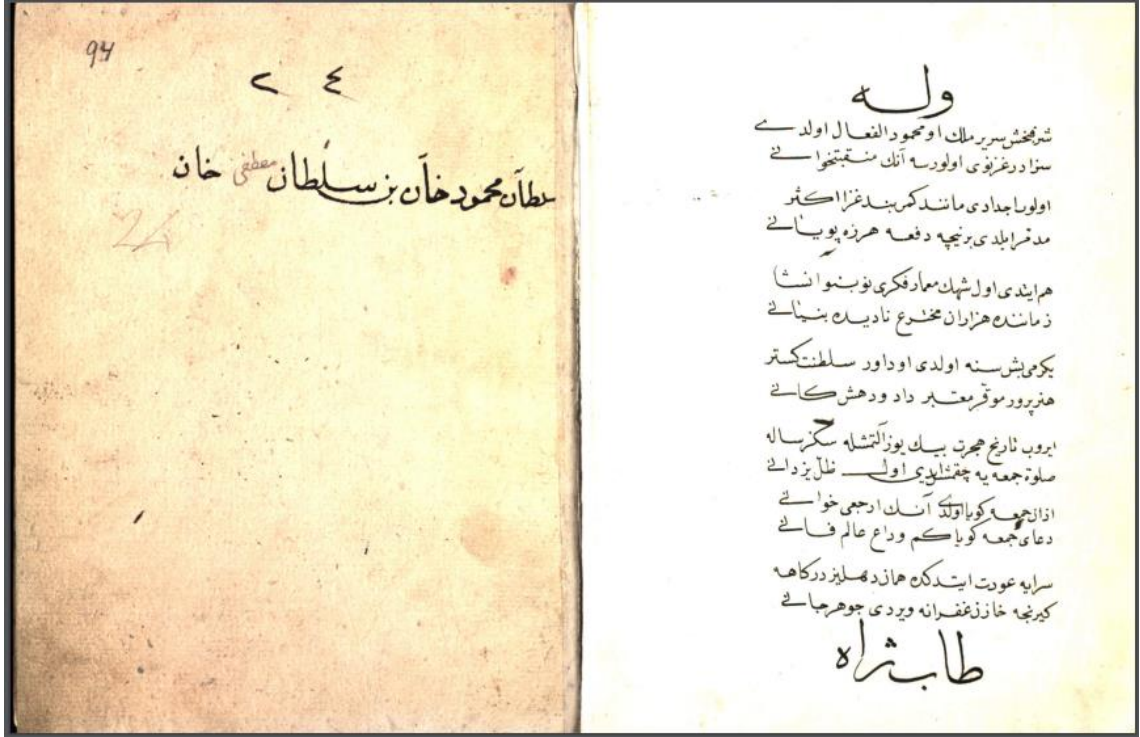 94
٢ ٤
سلطان محمود خان بن سلطان مصطفى خان
24
وله
شرفبخش سرير ملك او محمود الفعال اولدى
سزادر غزنوى اولورسه آنك منقبتخوانى
اولوب اجدادى مانند كمر بند غزا اكثر
مدقر ايلدى برنيچه دفعه هرزه پويانى
هم ايتدى اول شهك معمار فكرى نوبنو انشا
زماننده هزاران مخترع ناديده بنيانى
يكرمى بش سنه اولدى او داور سلطنت كستر
هنرپرور موقر معتبر داد ودهش كانى
ايروب تاريخ هجرت بيك يوز آلتمشله سكز ساله
صلوة جمعه يه چقمشايدى اول ظل يزدانى
اذان جمعه كويا اولدى آنك ارجعى خوانى
دعاى جمعه كويا كم وداع عالم فانى
سرايه عودت ايتدكده همان دهليز دركاهه
كيرنجه خازن غفرانه ويردى جوهر جانى
طاب ثراه